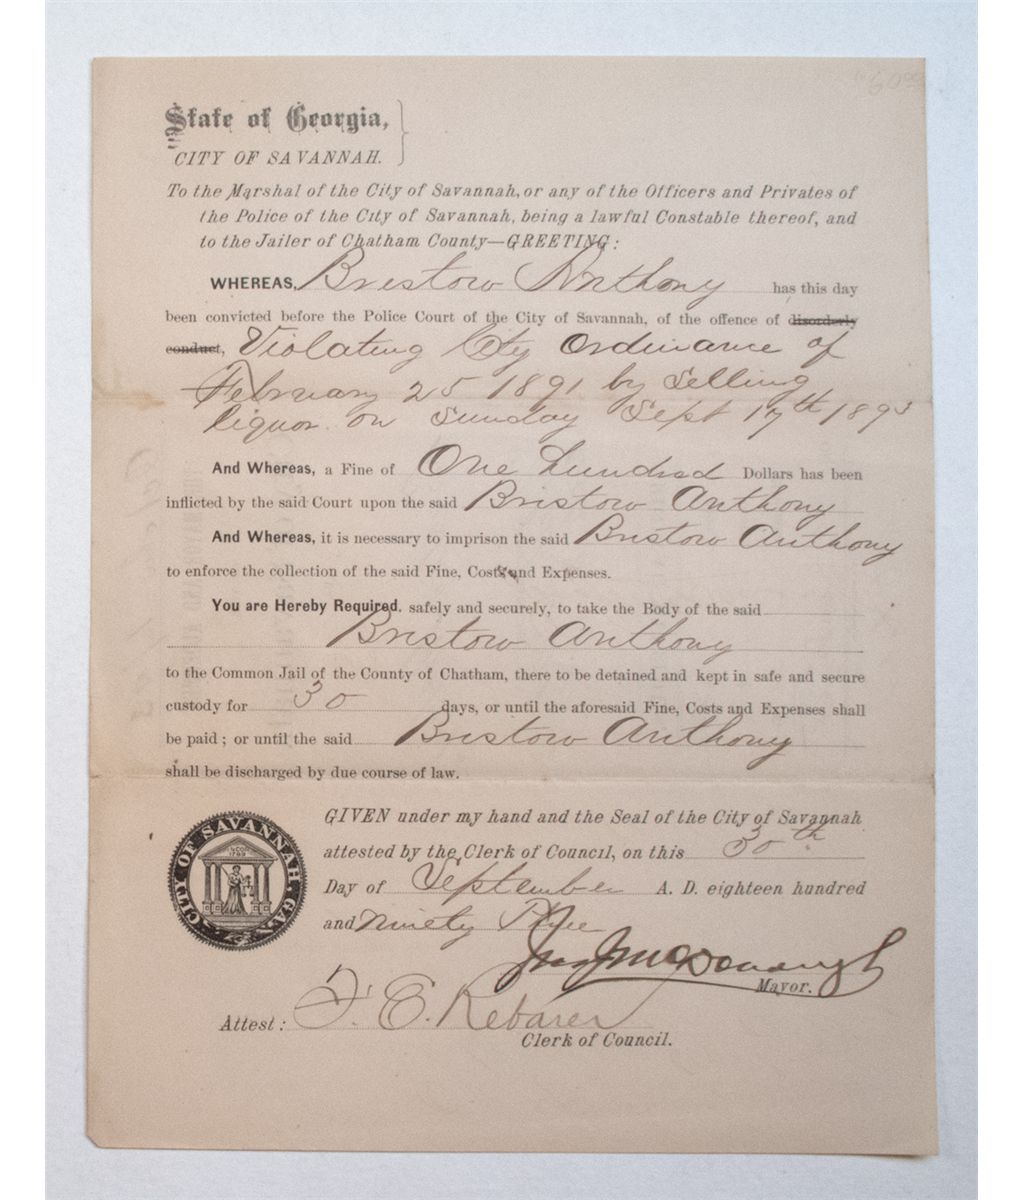 State of Georgia,
CITY OF SAVANNAH.
To the Marshal of the City of Savannah, or any of the Officers and Privates of
the Police of the City of Savannah, being a lawful Constable thereof, and
to the Jailer of Chatham County—GREETING:
WHEREAS, Bristow Anthony has this day
been convicted before the Police Court of the City of Savannah, of the offence of disorderly
conduct, Violating City Ordinance of
February 25 1891 by Selling
liquor on Sunday Sept 17th 1893
And Whereas, a Fine of One hundred Dollars has been
inflicted by the said Court upon the said Bristow Anthony
And Whereas, it is necessary to imprison the said Bristow Anthony
to enforce the collection of the said Fine, Costs and Expenses.
You are Hereby Required, safely and securely, to take the Body of the said
Bristow Anthony
to the Common Jail of the County of Chatham, there to be detained and kept in safe and secure
custody for 30 days, or until the aforesaid Fine, Costs and Expenses shall
be paid; or until the said Bristow Anthony
shall be discharged by due course of law.
GIVEN under my hand and the Seal of the City of Savannah
attested by the Clerk of Council, on this 30th
Day of September A. D. eighteen hundred
and Ninety Three
Jno J McDonough
Mayor.
Attest: F. E. Rebarer
Clerk of Council.
CITY OF SAVANNAH, GA.
1789